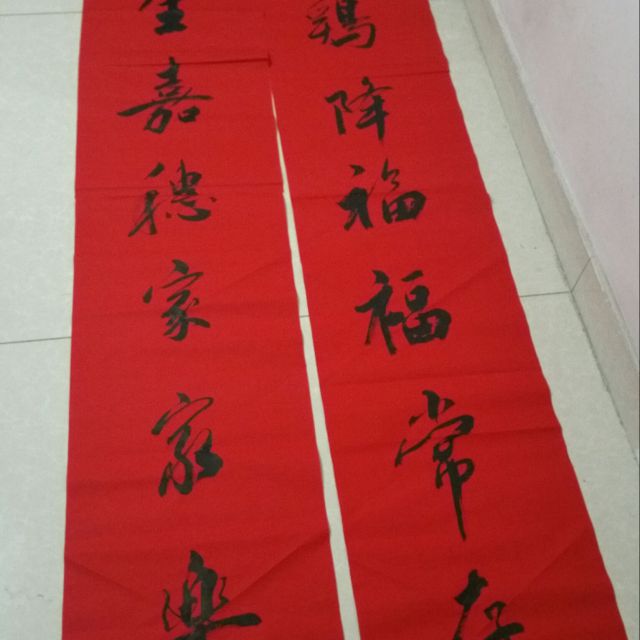 鷄降福福常存
生嘉穗家家樂